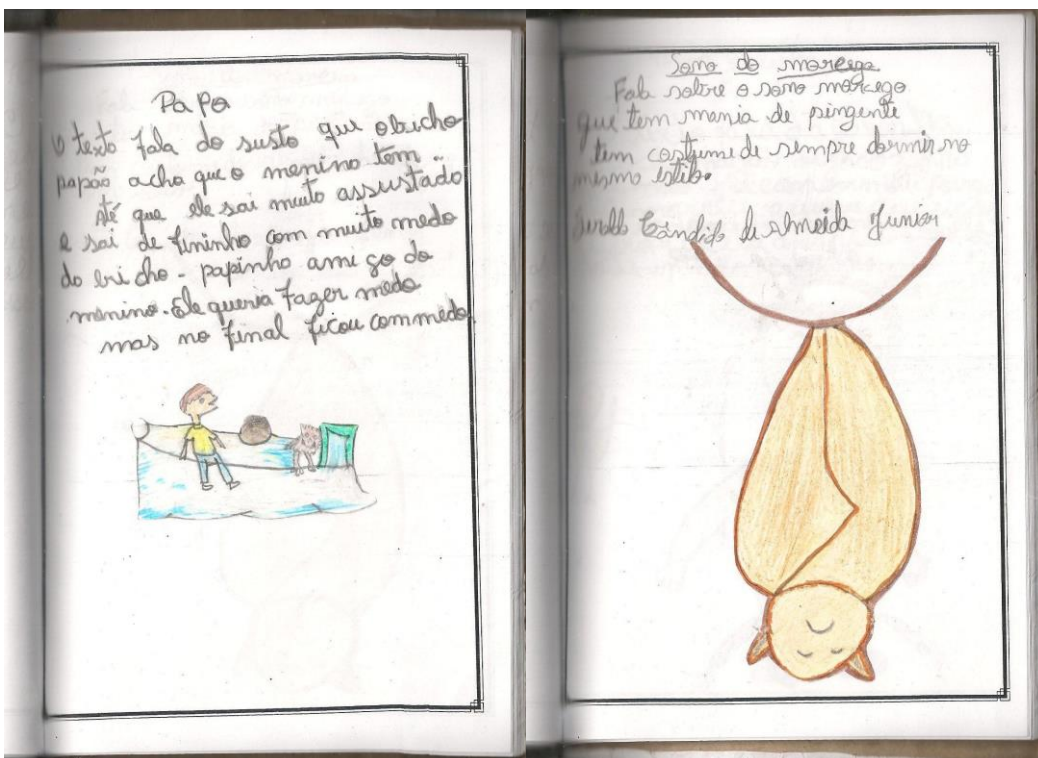 Papo
O texto fala do susto que o bicho
papão acha que o menino tem
Até que ele sai muito assustado
e sai de fininho com muito medo
do bricho - papinho amigo do
menino. Ele queria fazer medo
mas no final ficou com medo
Sono do morcego
Fala sobre o sono morcego
que tem mania de pingente
tem costume de sempre dormir no
mesmo estilo.
Cândido de Almeida Junior